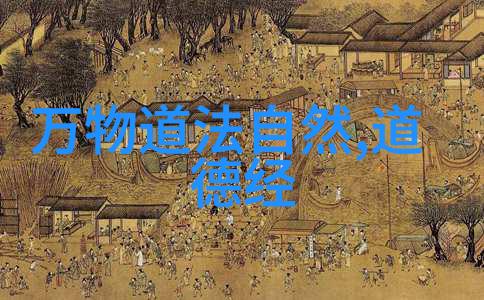 万物道法自然,道
德经